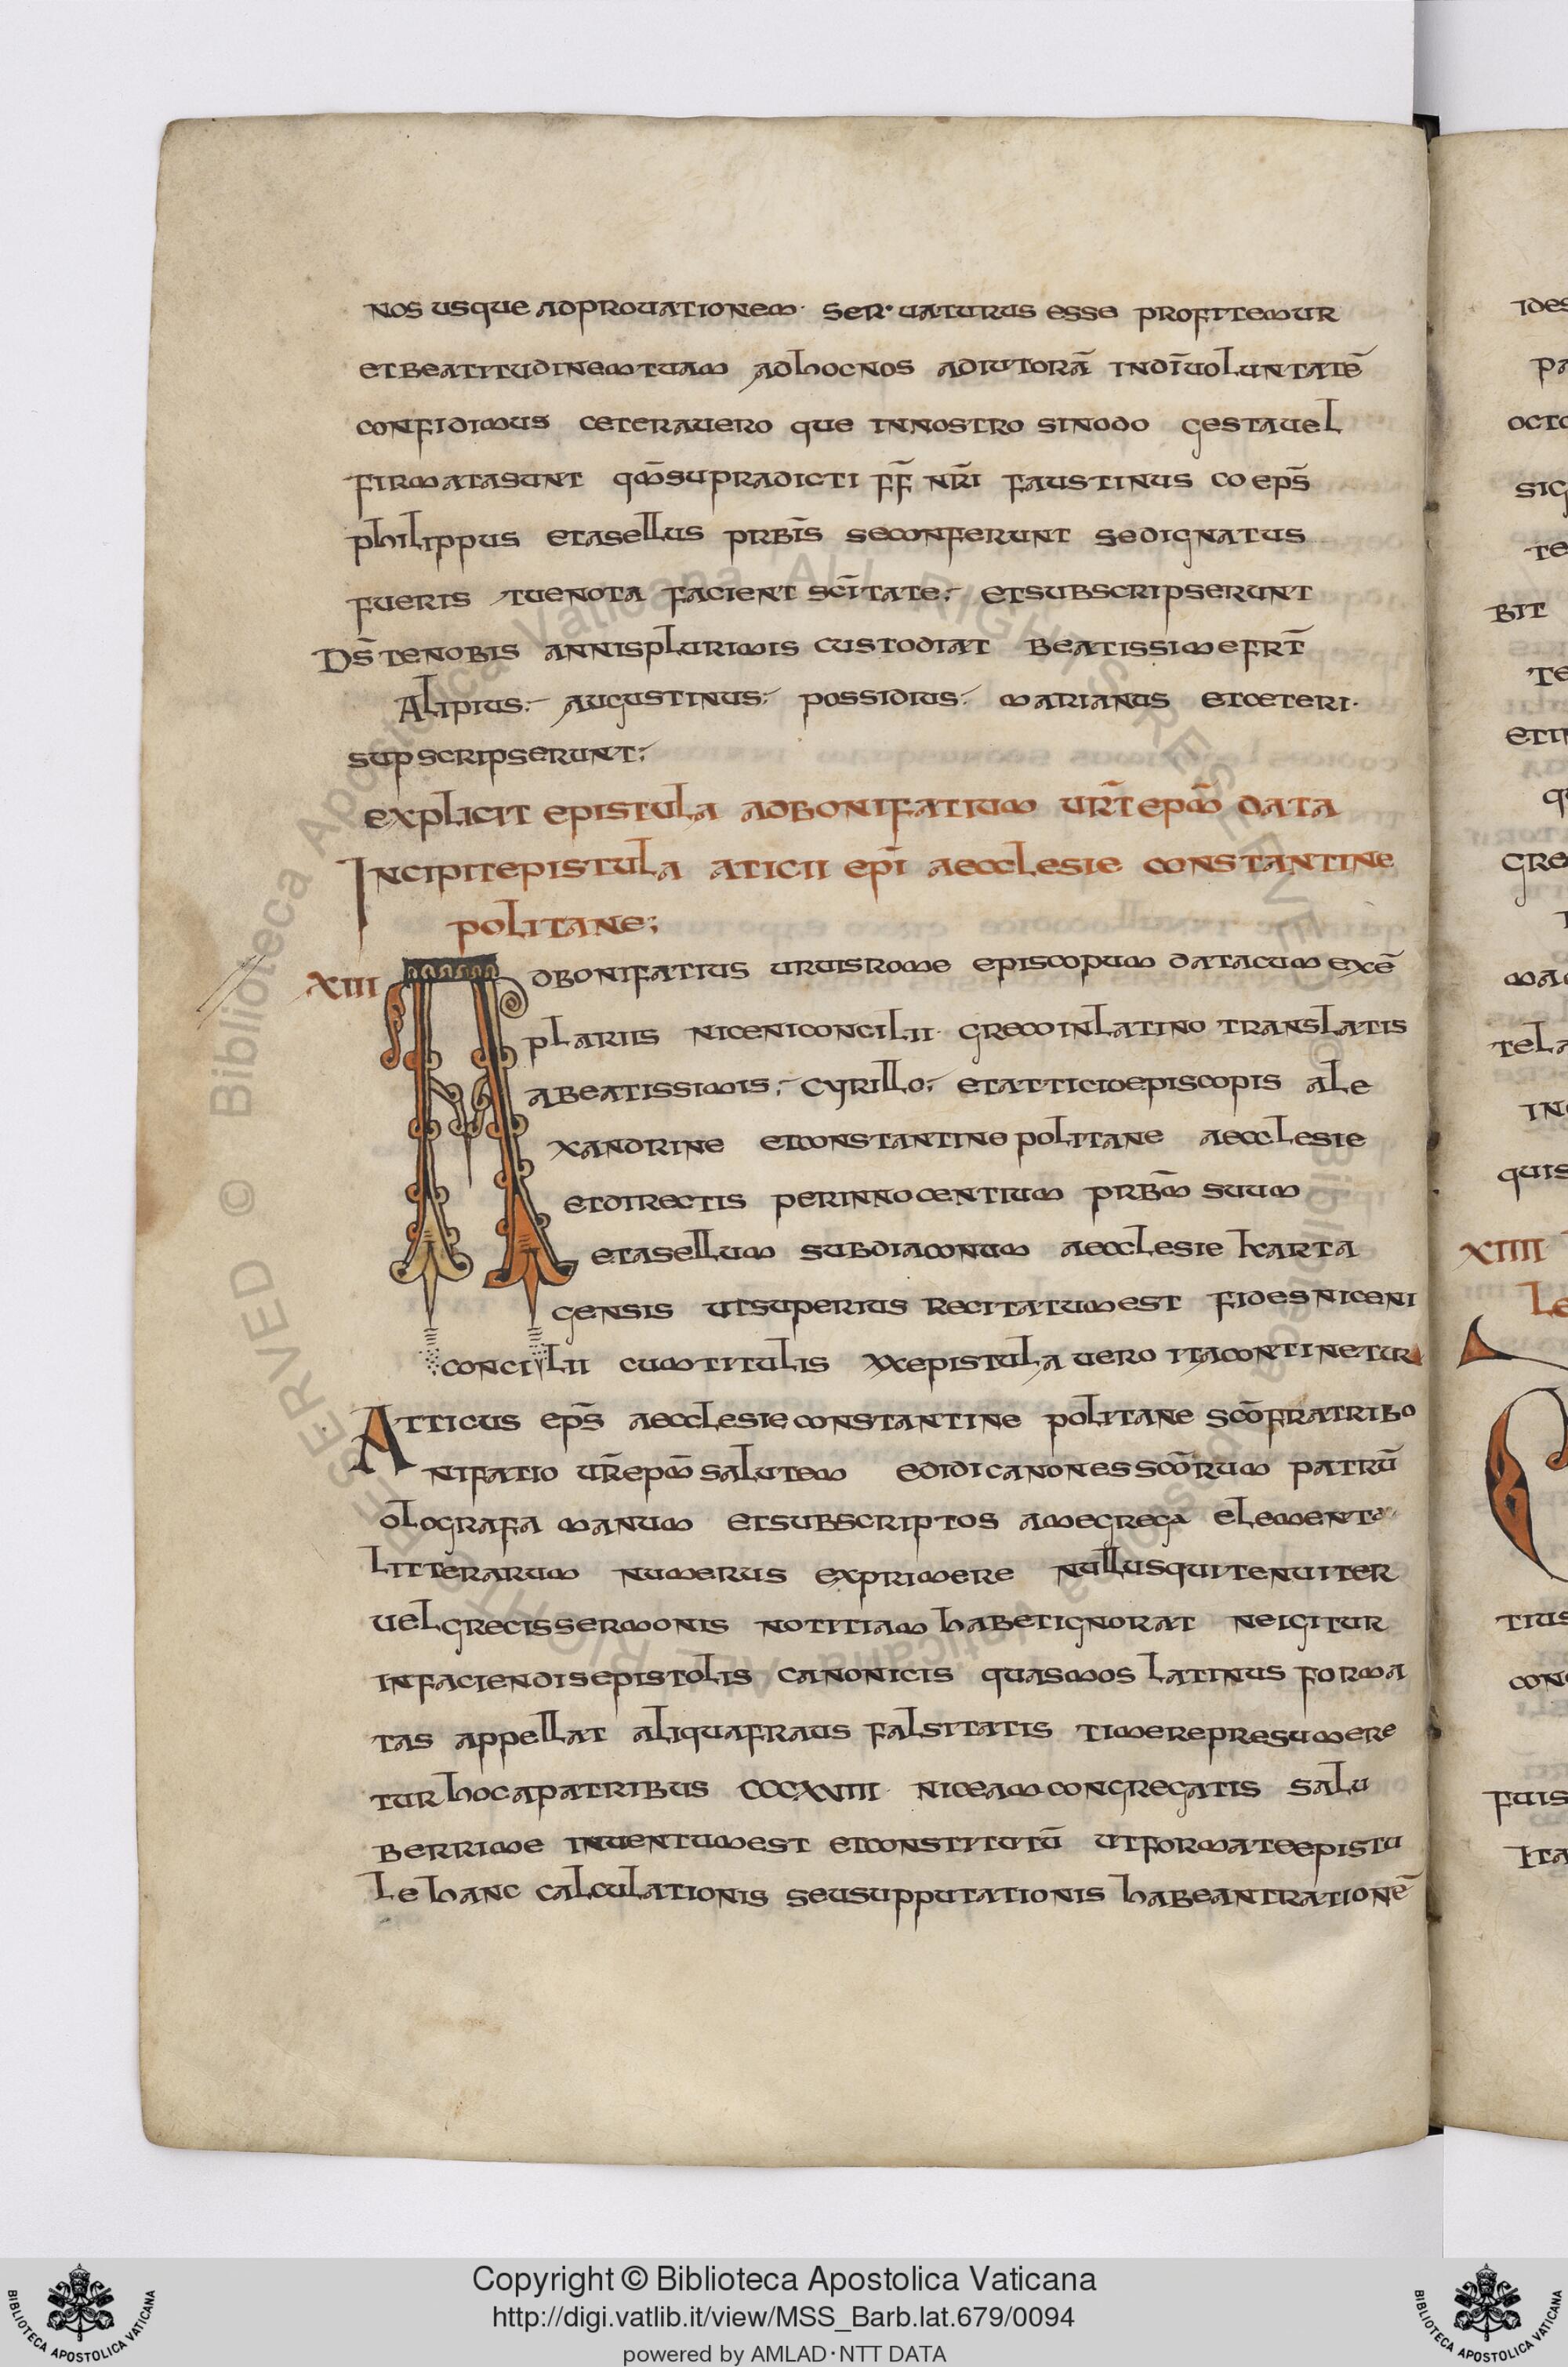 nos usque adprouationem· ser·uaturus esse profitemur
etbeatitudinemtuam adhocnos adiutorā indīuoluntatē
confidimus ceterauero que innostro sinodo gestauel
firmatasunt qm̄supradicti ff̄ nr̄i faustinus coeps̄
philippus etasellus prbīs seconferunt sedignatus
fueris tuenota facient sc̄itate; etsubscripserunt
Ds̄tenobis annisplurimis custodiat beatissimefrt̄
Alipius; augustinus; possidius; marianus etceteri·
supscripserunt;
explicit epistula adbonifatium ur̄tepm̄ data
Incipitepistula aticii epī aecclesie constantine
politane;
XIII Adbonifatius uruisrome episcopum datacumexē
plariis niceniconcilii· grecoinlatino translatis
abeatissimis; cyrillo; etatticioepiscopis ale
xandrine etconstantinopolitane aecclesie
etdirectis perinnocentium prbm̄ suum
etasellum subdiaconum aecclesie kcarta
gensis utsuperius recitatumest fidesniceni
concilii cumtitulis xxepistula uero itacontinetur
Atticus eps̄ aecclesieconstantine politane scōfratribo
nifatio ur̄epm̄salutem edidicanonesscōrum patrū
olografa manum etsubscriptos amegrega elementa
litterarum numerus exprimere nullusquitenuiter
uelgrecissermonis notitiam habetignorat neigitur
infaciendisepistolis canonicis quasmos latinus forma
tas appellat aliquafraus falsitatis timerepresumere
turhocapatribus CCCXVIII· niceamcongregatis salu
berrime inuentumest etconstitutū utformateepistu
lehanc calculationis seusupputationis habeantrationē
XIIII
Copyright © Biblioteca Apostolica Vaticana
http://digi.vatlib.it/view/MSS_Barb.lat.679/0094
powered by AMLAD·NTT DATA